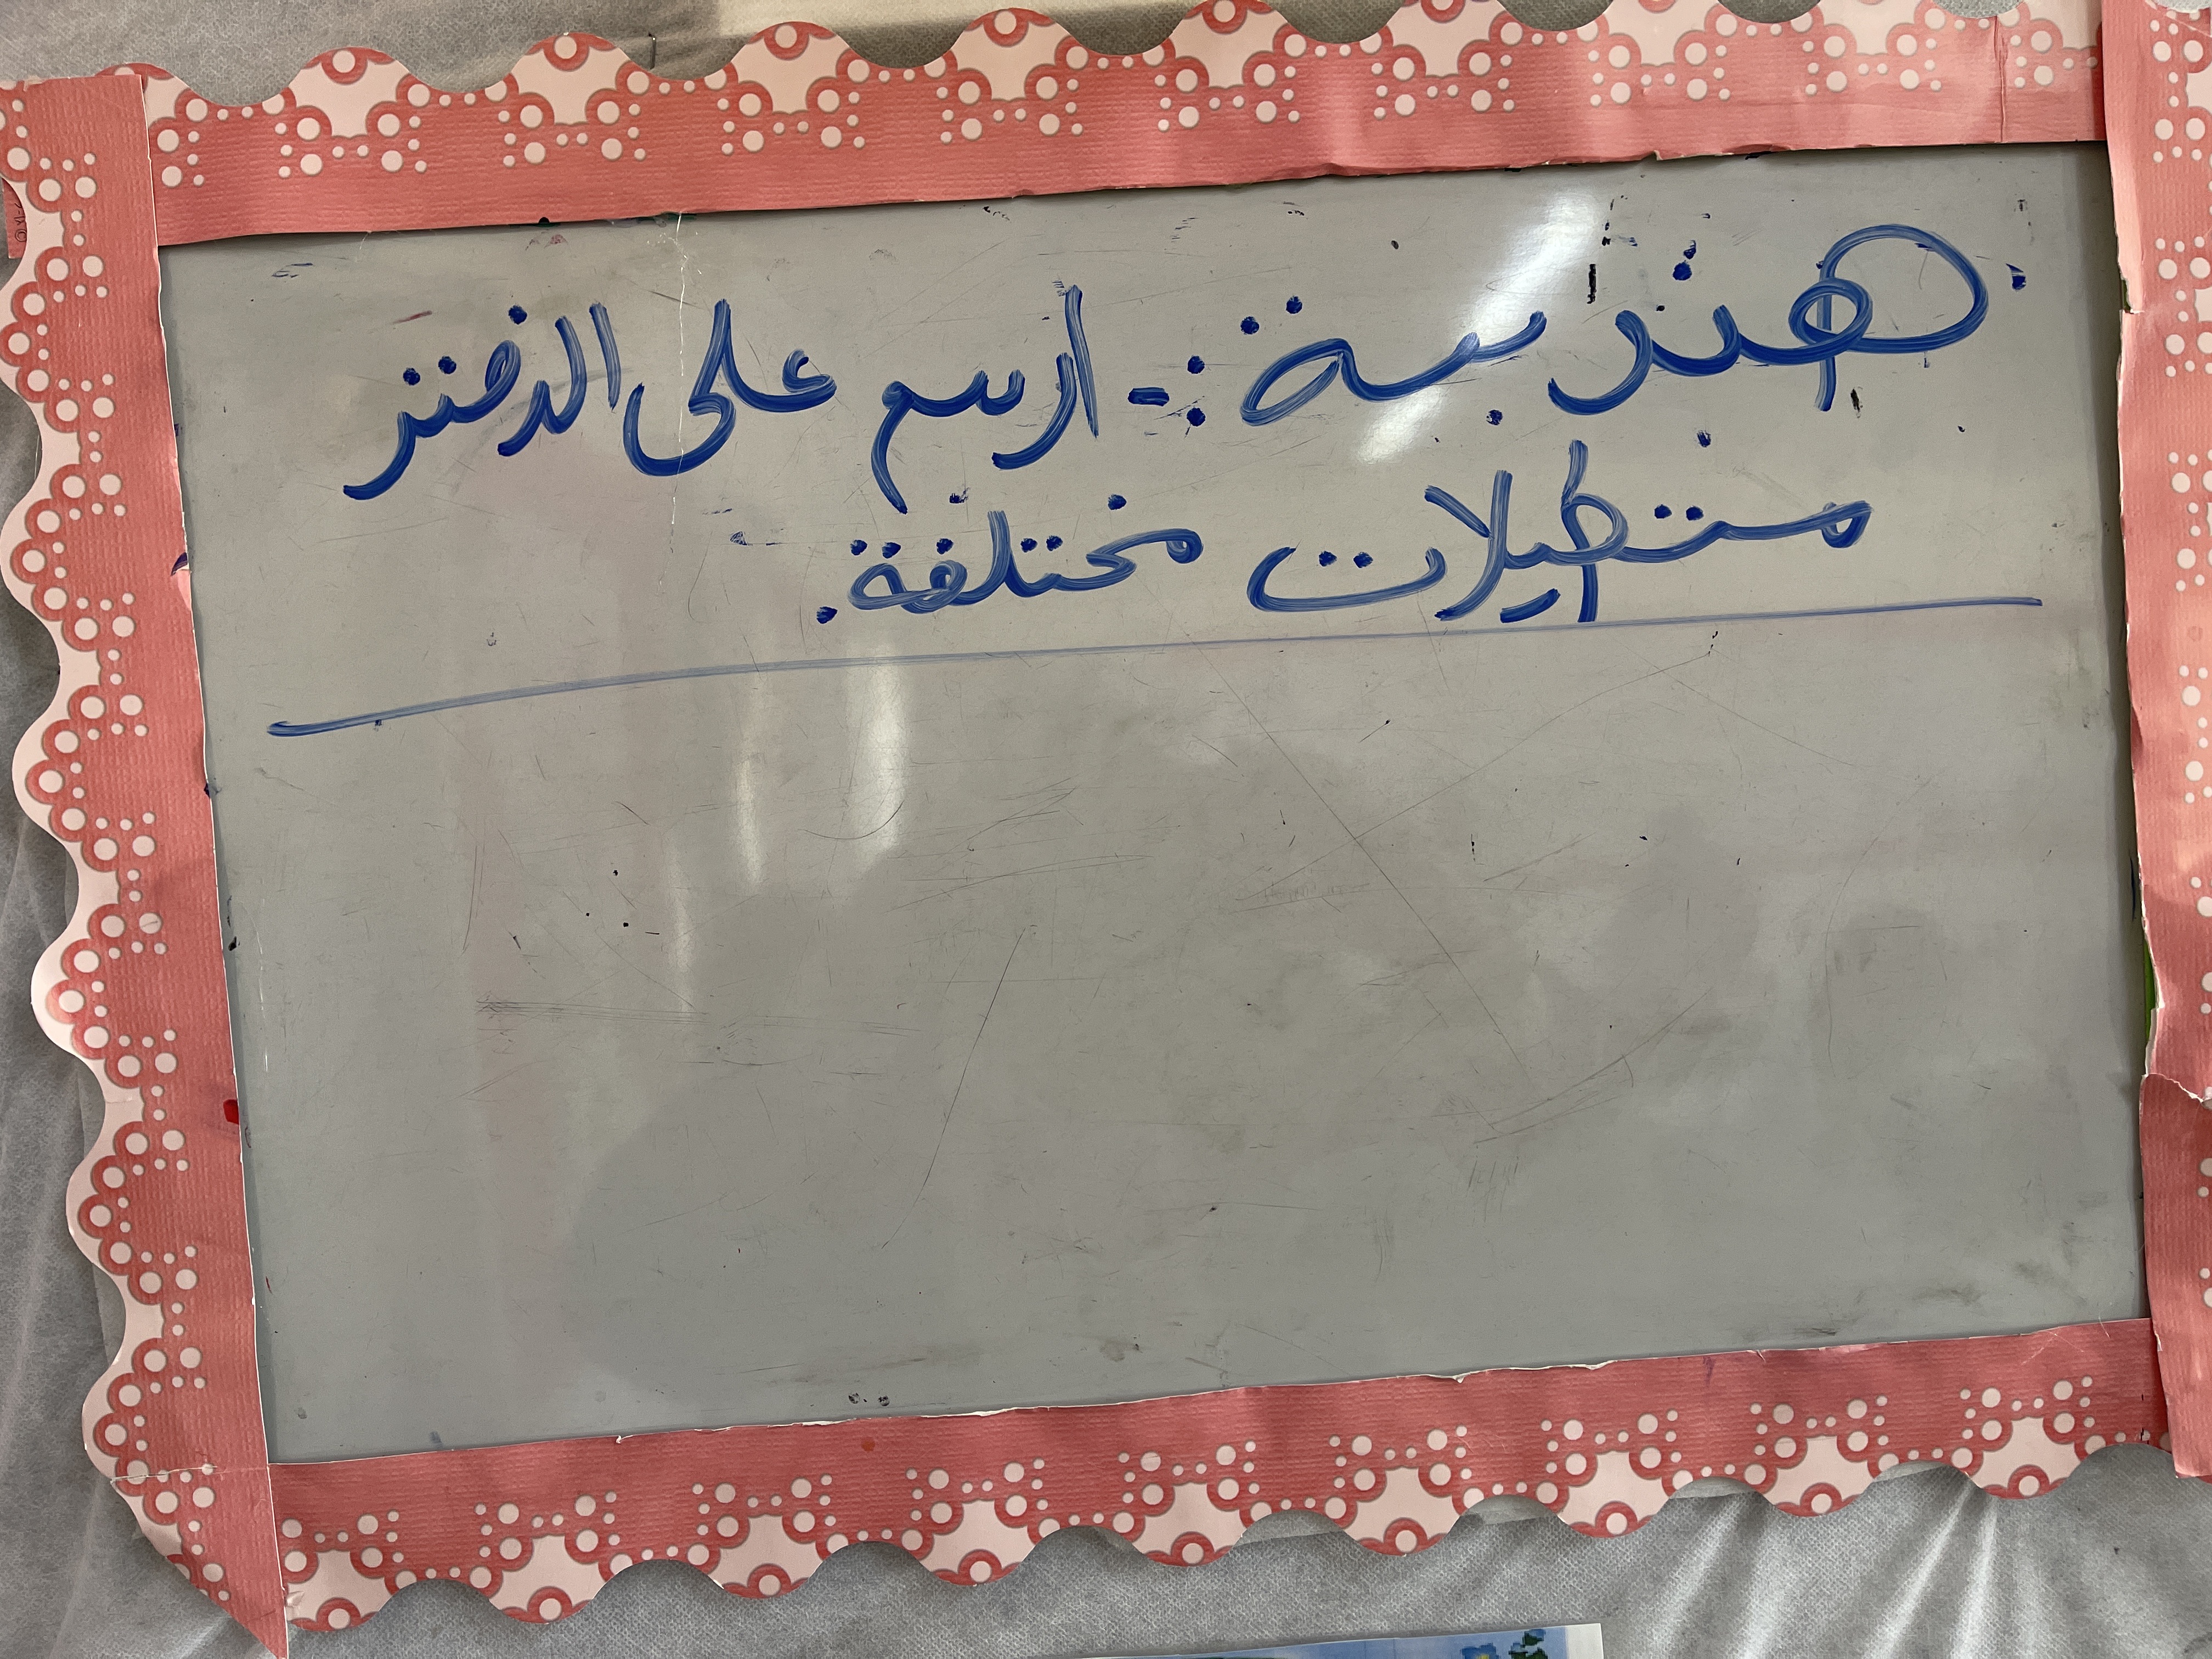 هندسة :- ارسم على الدفتر
مستطيلات مختلفة.